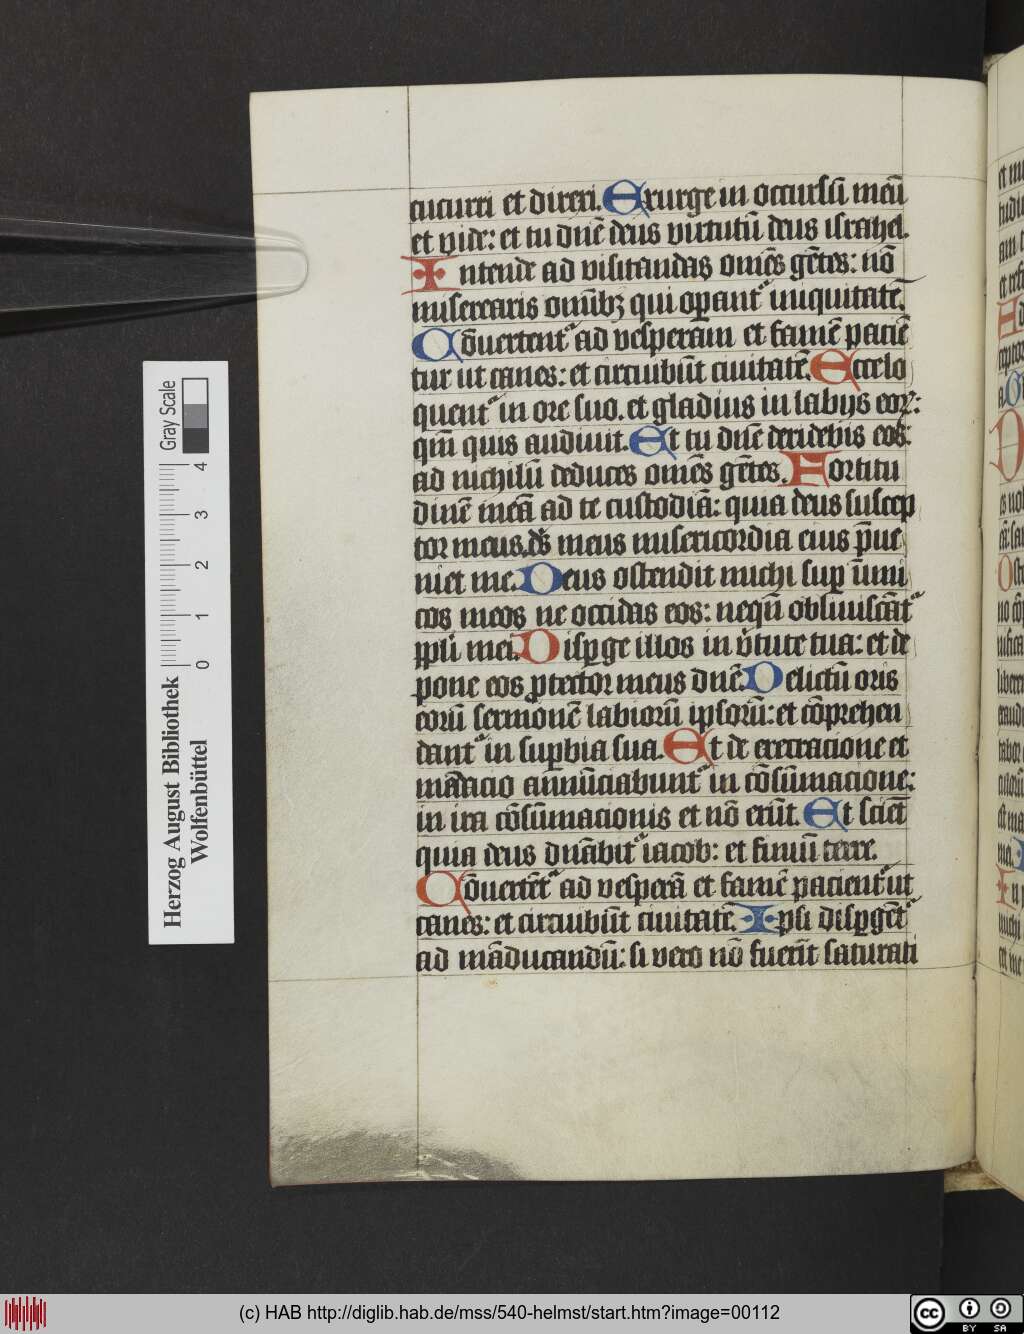 cucurri et direxi. Exurge in occursū meū
et vide: et tu dnē deus virtutū deus israhel.
Intende ad visitandas omēs gētes: nō
miserearis omībꝫ qui oꝑantᷣ iniquitatē.
Cōvertentᷣ ad vesperam et famē pacie
tur ut canes: et circuibūt civitatē. Ecce lo
quentᷣ in ore suo. et gladius in labijs eoꝝ:
qm̄ quis audivit. Et tu dnē deridebis eos:
ad nichilū deduces omēs gētes. Fortitu
dinē meā ad te custodiā: quia deus suscep
tor meus. ds̄ meus misericordia eius p̄ve
niet me. Deus ostendit michi suꝑ inimi
cos meos ne occidas eos: nequn̄ obliviscātᷣ
ppl̄i mei. Disꝑge illos in v̓tute tua: et de
pone eos ꝓtector meus dnē. Delictū oris
eorū sermonē labiorū ipsorū: et cōprehen
dantᷣ in suꝑbia sua. Et de execracione et
mēdacio annūciabuntᷣ in cōsūmacione:
in ira cōsūmacionis et nō erūt. Et sciēt
quia deus dnābitᷣ iacob: et finiū terre.
Cōvertētᷣ ad vesperā et famē pacientᷣ ut
canes: et circuibūt civitatē. Ipsi disꝑgētᷣ
ad māducandū: si vero nō fuerīt saturati
Gray Scale
0 1 2 3 4
Herzog August Bibliothek
Wolfenbüttel
(c) HAB http://diglib.hab.de/mss/540-helmst/start.htm?image=00112
cc BY SA